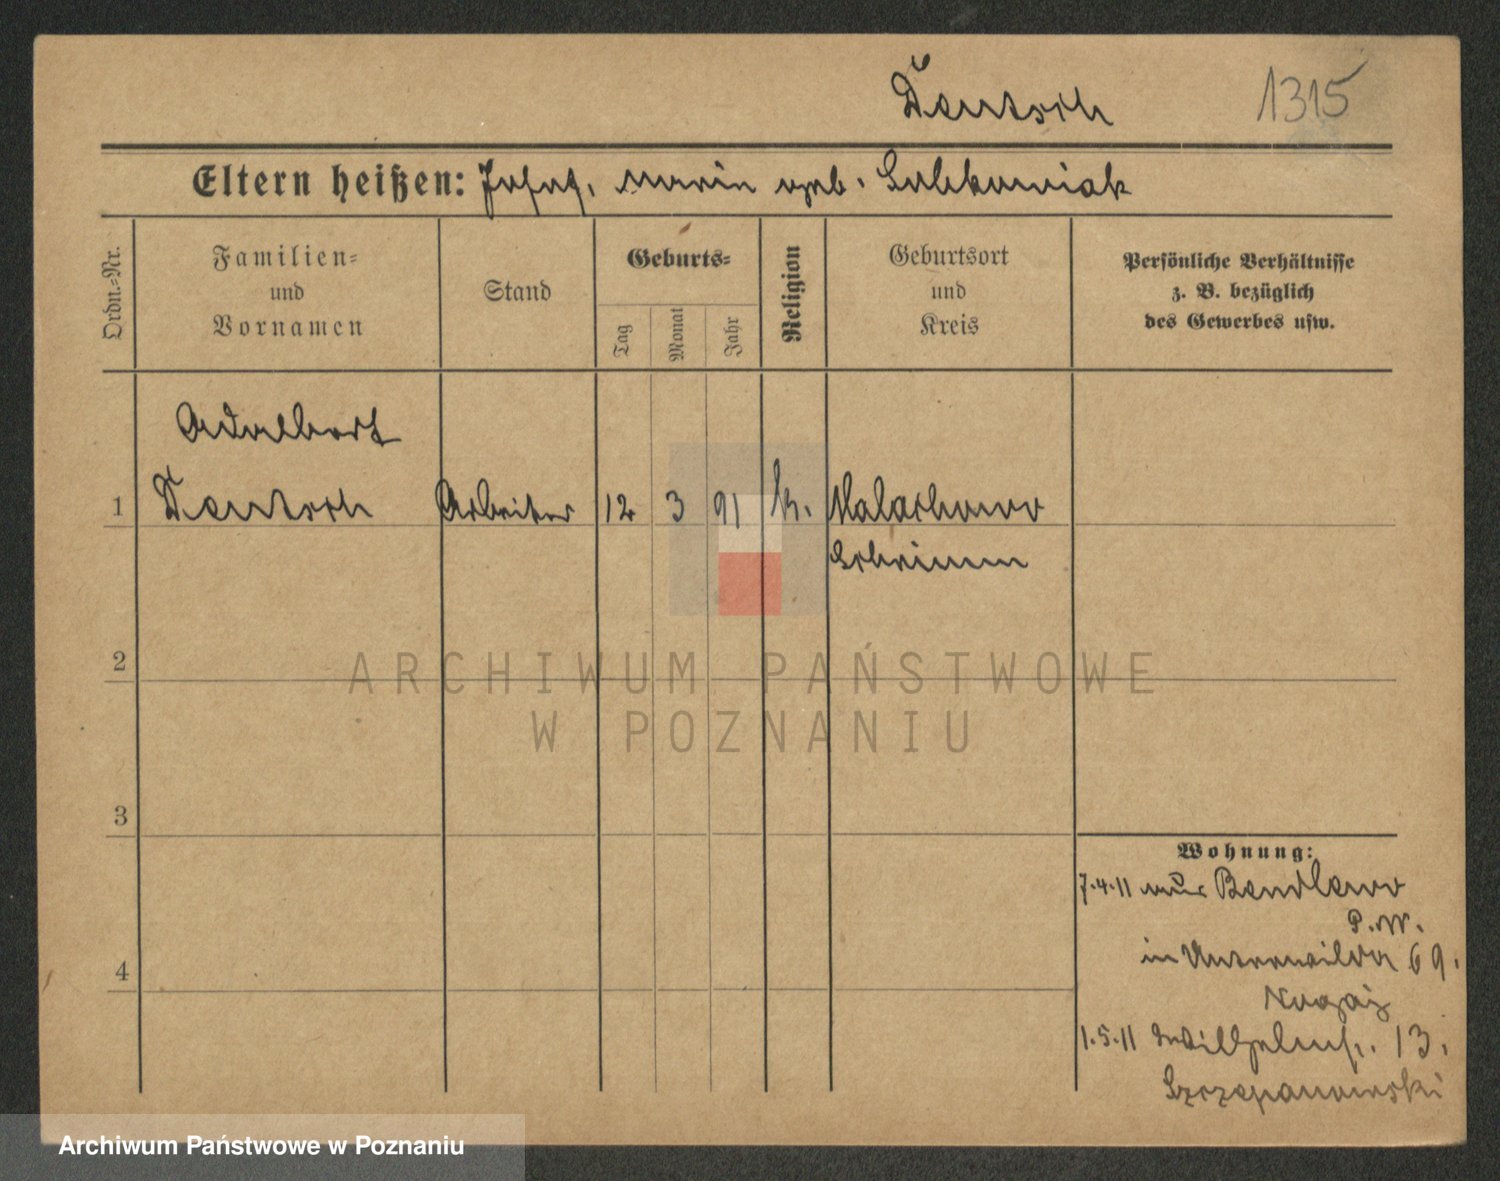 Deutsch 1315
Eltern heißen: Josef, Marie geb. Sobkowiak
Ordn.-Nr. Familien- und Vornamen Stand Geburts- Tag Monat Jahr Religion Geburtsort und Kreis Persönliche Verhältnisse z. B. bezüglich des Gewerbes usw.
Adalbert
1 Deutsch Arbeiter 12 3 91 k. Malachowo
Schrimm
2
ARCHIWUM PAŃSTWOWE
W POZNANIU
3
Wohnung:
7.4.11 aus Bendlewo
P.W.
4
in Unterwilda 69.
Nogaj
1.5.11 Wilhelmstr. 13.
Szczepanowski
Archiwum Państwowe w Poznaniu